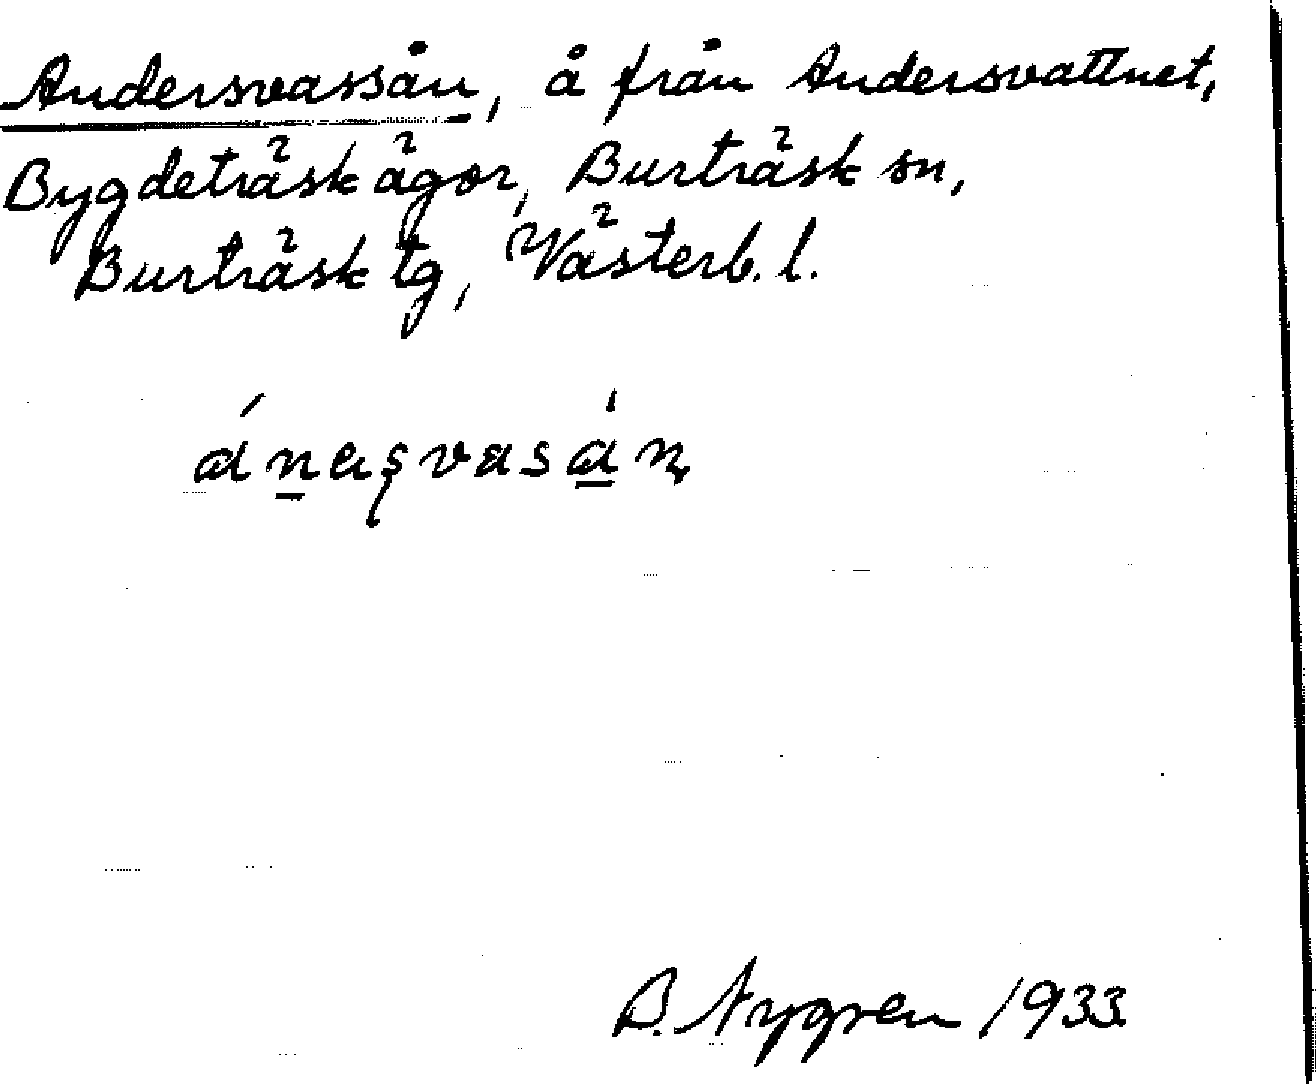 Andersvassån, å från Andersvattnet,
Bygdeträsk ägor, Burträsk sn,
Burträsk tg, Västerb. l.
B. Nygren 1933